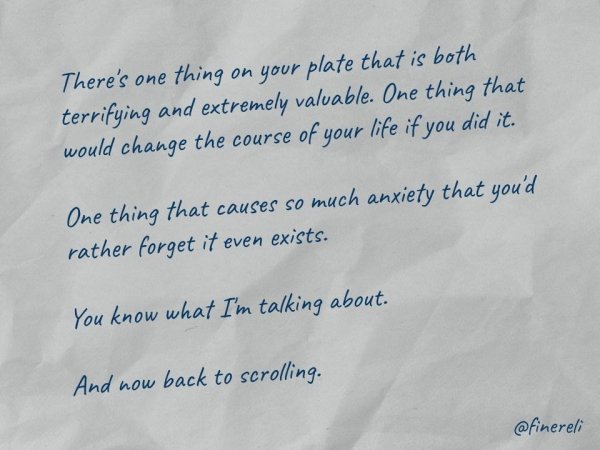 There's one thing on your plate that is both
terrifying and extremely valuable. One thing that
would change the course of your life if you did it.
One thing that causes so much anxiety that you'd
rather forget it even exists.
You know what I'm talking about.
And now back to scrolling.
@finereli